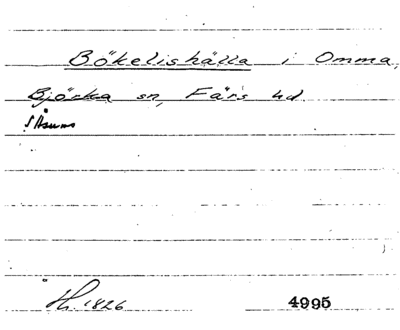 Bökelishälla i Omma,
Björka sn, Färs hd
S Åsums
1826 4995